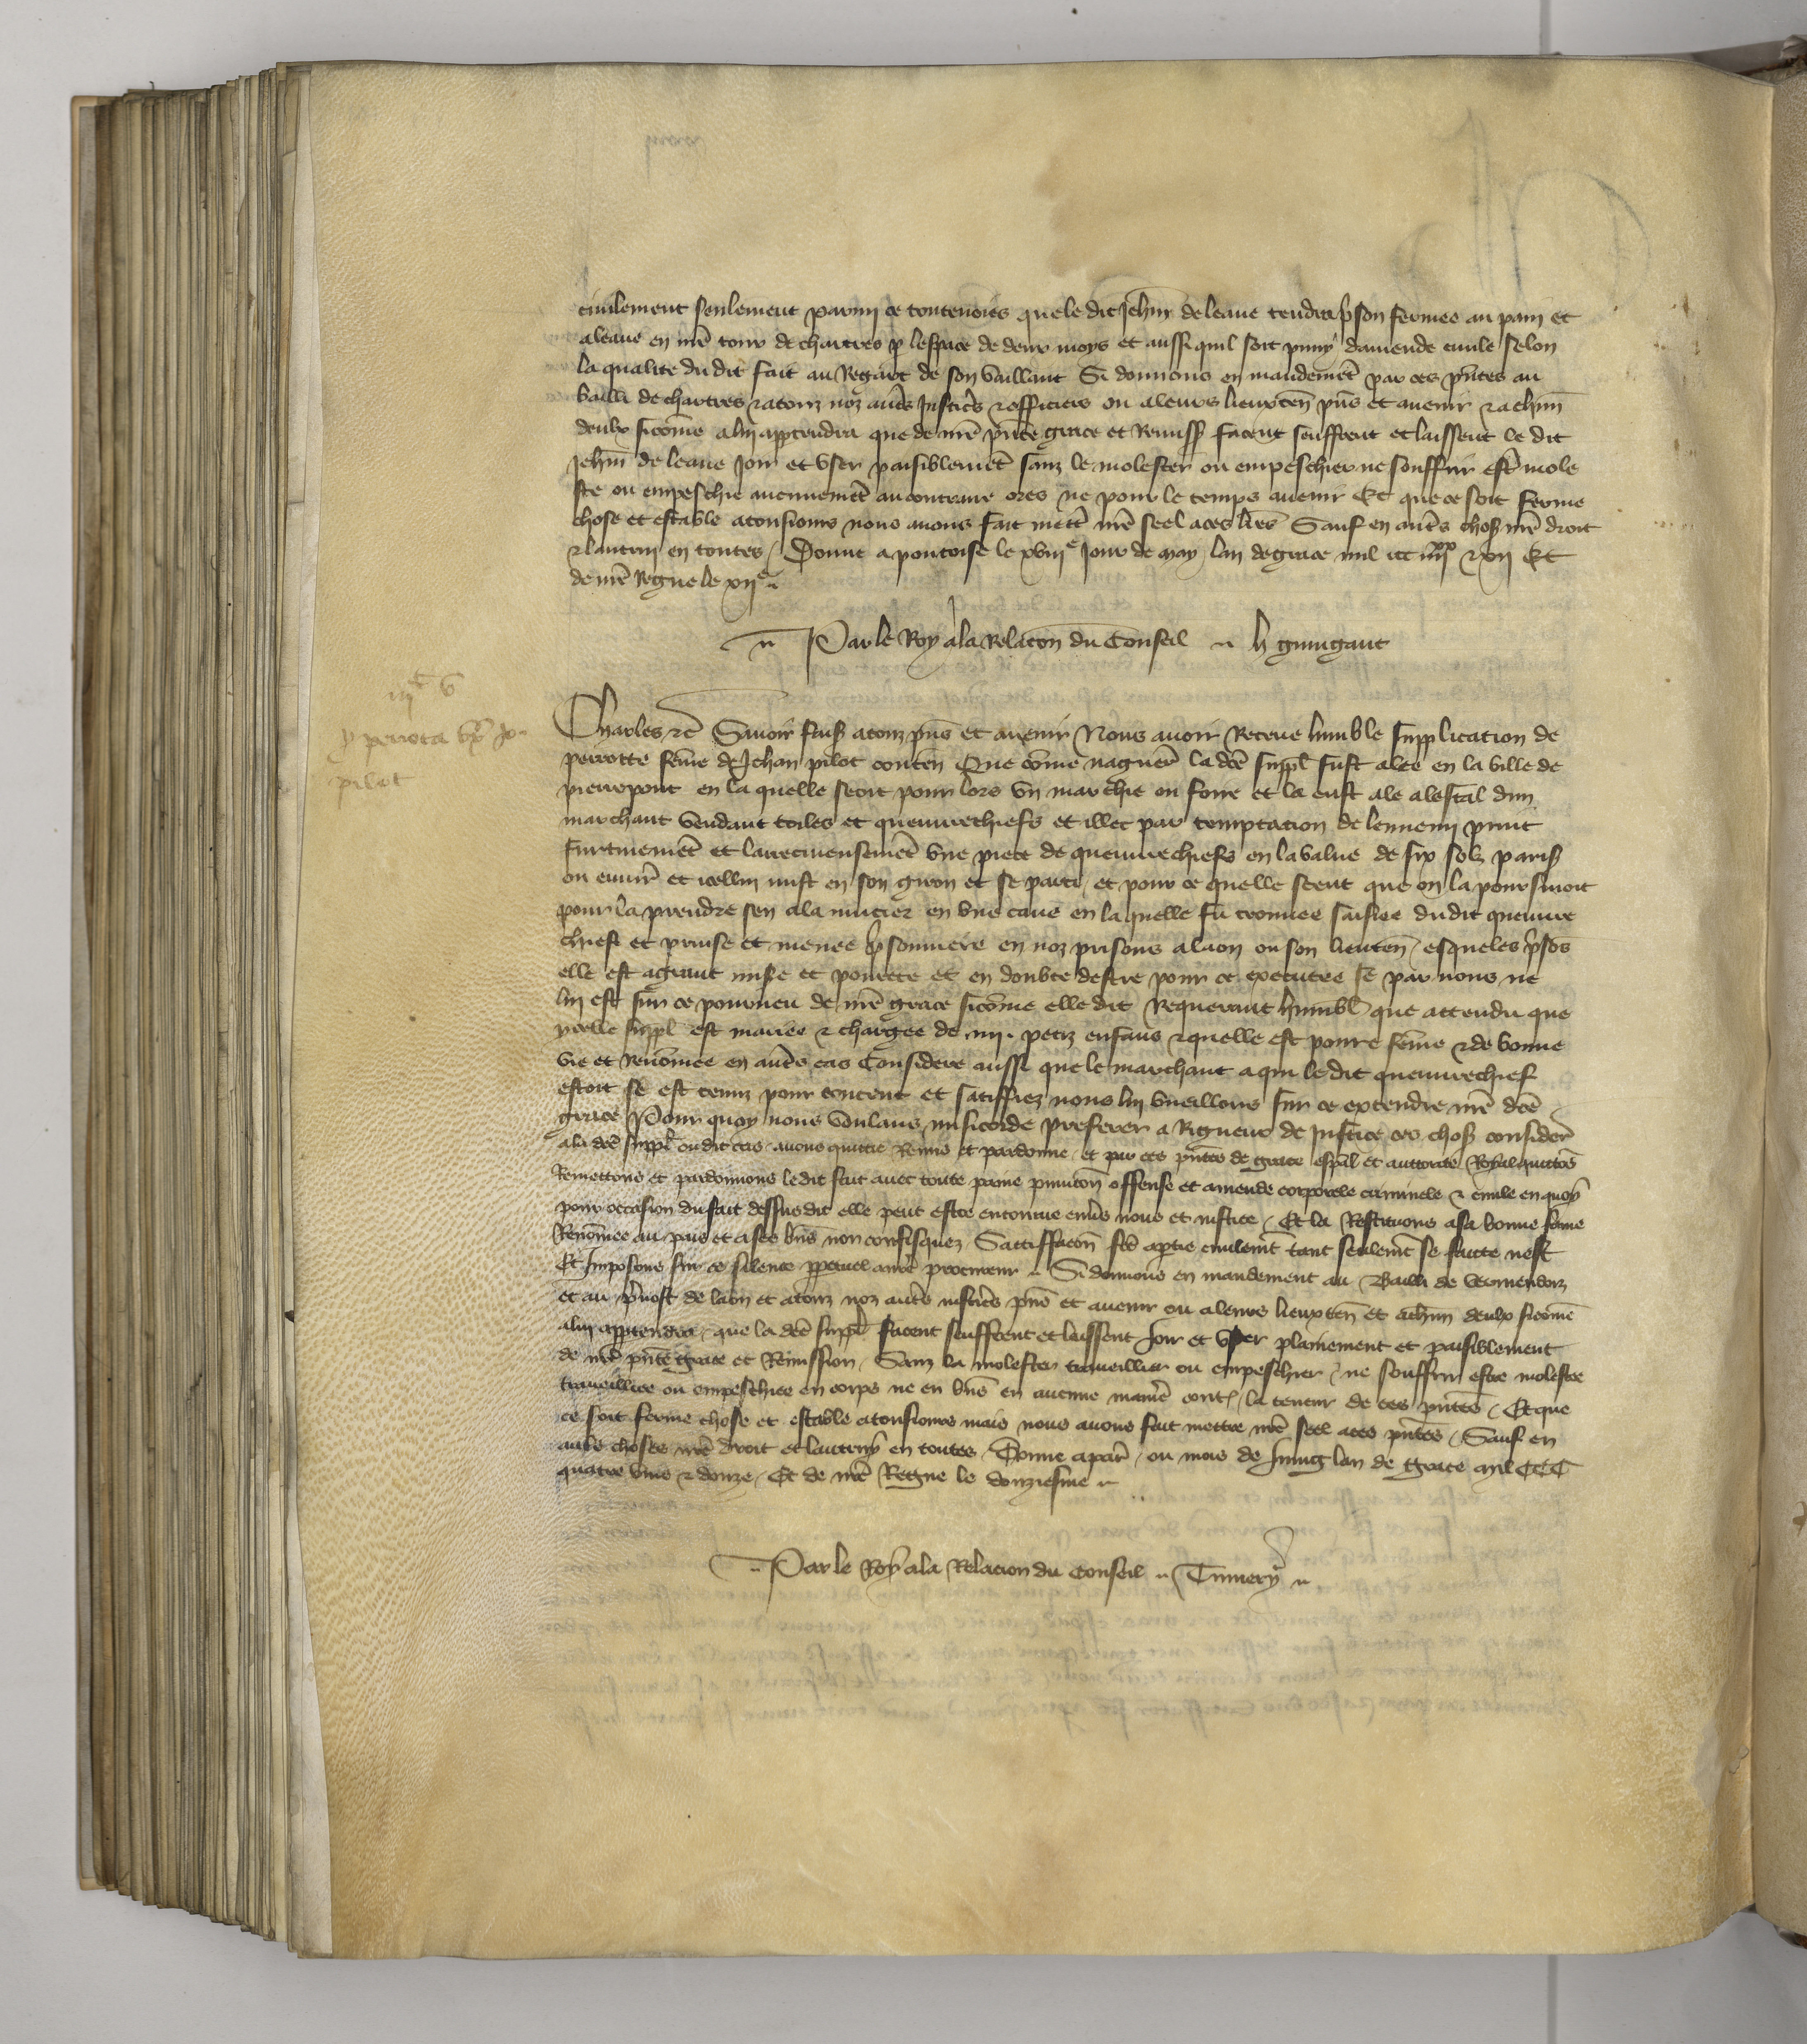 civilement seulement parmi ce toutevoies que le dit Jehan de leaue tendra pson fermee au pain et
a leaue en nre tour de chartres p lespace de deux moys et aussi quil soit puny damende civile selon
la qualite du dit fait au Regart de son vaillant Si donnons en mandemt par ces pntes au
bailli de chartres & a touz noz autres Justices & officiers ou a leurs lieuxten pns et avenir & a chun
deulx sicome a lui apptendra que de nre pnte grace et Remiss facent seuffrent et laissent le dit
Jehan de leaue Joir et user paisiblemt sanz le molester ou empeschier ne souffrir estre mole
ste ou empeschie aucunemt au contraire ores ne pour le temps avenir Et que ce soit ferme
chose et estable a tousiours nous avons fait mettre nre seel a ces lres Sauf en autres chos nre droit
& lautrui en toutes / Donne a pontoise le xviii e Jour de may lan de grace mil ccc iiii xx & xii Et
de nre Regne le xii e
Par le Roy a la Relacon du Conseil h guingant
iii c v
p perrota ux Jo
pilot
Charles &c Savoir fais a touz pns et avenir Nous avoir Receue humble Supplication de
perrotte feme de Jehan pilot conten Que come naguer la dce suppl fust alee en la ville de
pierrepont en la quelle seoit pour lors un marchie ou foire et la eust ale a lestal dun
marchant vendant toiles et queuvrechiefs et illec par temptacion de lennemi print
furtivemt et larrecineusemt une piece de queuvrechiefs en la value de six solz paris
ou envir et icellui mist en son giron et se parti / et pour ce quelle scent que on la poursivoit
pour la prendre sen ala mucier en une cave en la quelle fu trouvee saisiee du dit queuvre
chief et prinse et menee psonniere en noz prisons a laon ou son lieuten / esqueles psos
elle est a grant mise et povrete et en doubte destre pour ce executee se par nous ne
lui est sur ce pourveu de nre grace sicome elle dit Requerant humbl que attendu que
ycelle suppl est mariee & chargee de iiii. petiz enfans & quelle est povre feme & de bonne
vie et Renomee en autres cas Considere aussi que le marchant a qui le dit queuvrechief
estoit se est tenu pour content et satiffiez nous lui vueillons sur ce extendre nre dce
grace Pour quoy nous voulans misicorde preferer a Rigueur de Justice ces chos consider
a la dce suppl ou dit cas avons quittie Remis et pardonne / et par ces pntes de grace espal et auttorite Royal quittos
Remettons et pardonnons le dit fait avec toute paine punicon offense et amende corporele criminele & civile en quoy
pour occasion du fait dessus dit elle peut estre encourue envs nous et justice / Et la Restituons a sa bonne fame
Renomee au pais et a ses bns non confisquez Sattiffacon fce a ptie civilemt tant seulemt se faicte nest
Et Imposons sur ce silence ppetuel a nre procureur Si donnons en mandement au Bailli de Vermendoiz
et au pvost de laon et a touz noz autres justicrs pns et avenir ou a leurs lieuxten et a chun deulx sicome
a lui apptendra / que la dce suppl facent seuffrent et laissent Joir et user plainement et paisiblement
de nre pnte grace et Remission / Sanz la molester traveillier ou empeschier / ne souffrir estre molestee
traveilliee ou empeschiee en corps ne en bns en aucune manre contr la teneur de ces pntes / Et que
ce soit ferme chose et estable a tousiours mais nous avons fait mettre nre seel a ces pntes / Sauf en
autres choses nre droit et lautruy en toutes / Donne a par / ou mois de Juing lan de grace mil CCC
quatre vins & douze / Et de nre Regne le douziesme
Par le Roy a la Relacion du Conseil